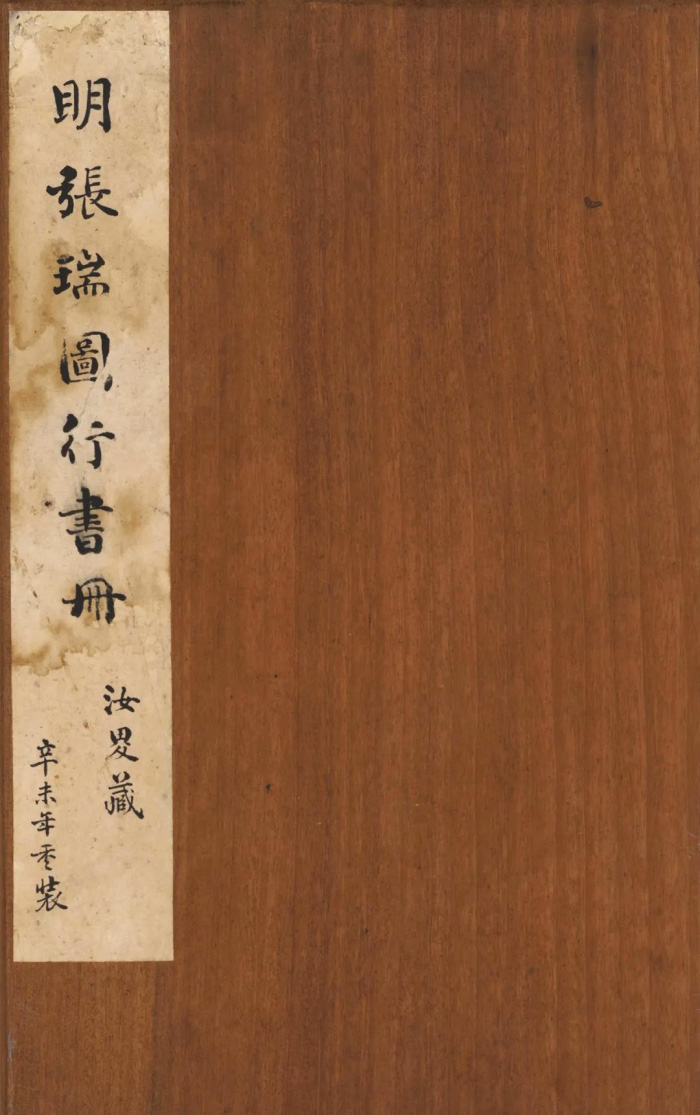 明張瑞圖行書冊
汝叟藏
辛未年重裝